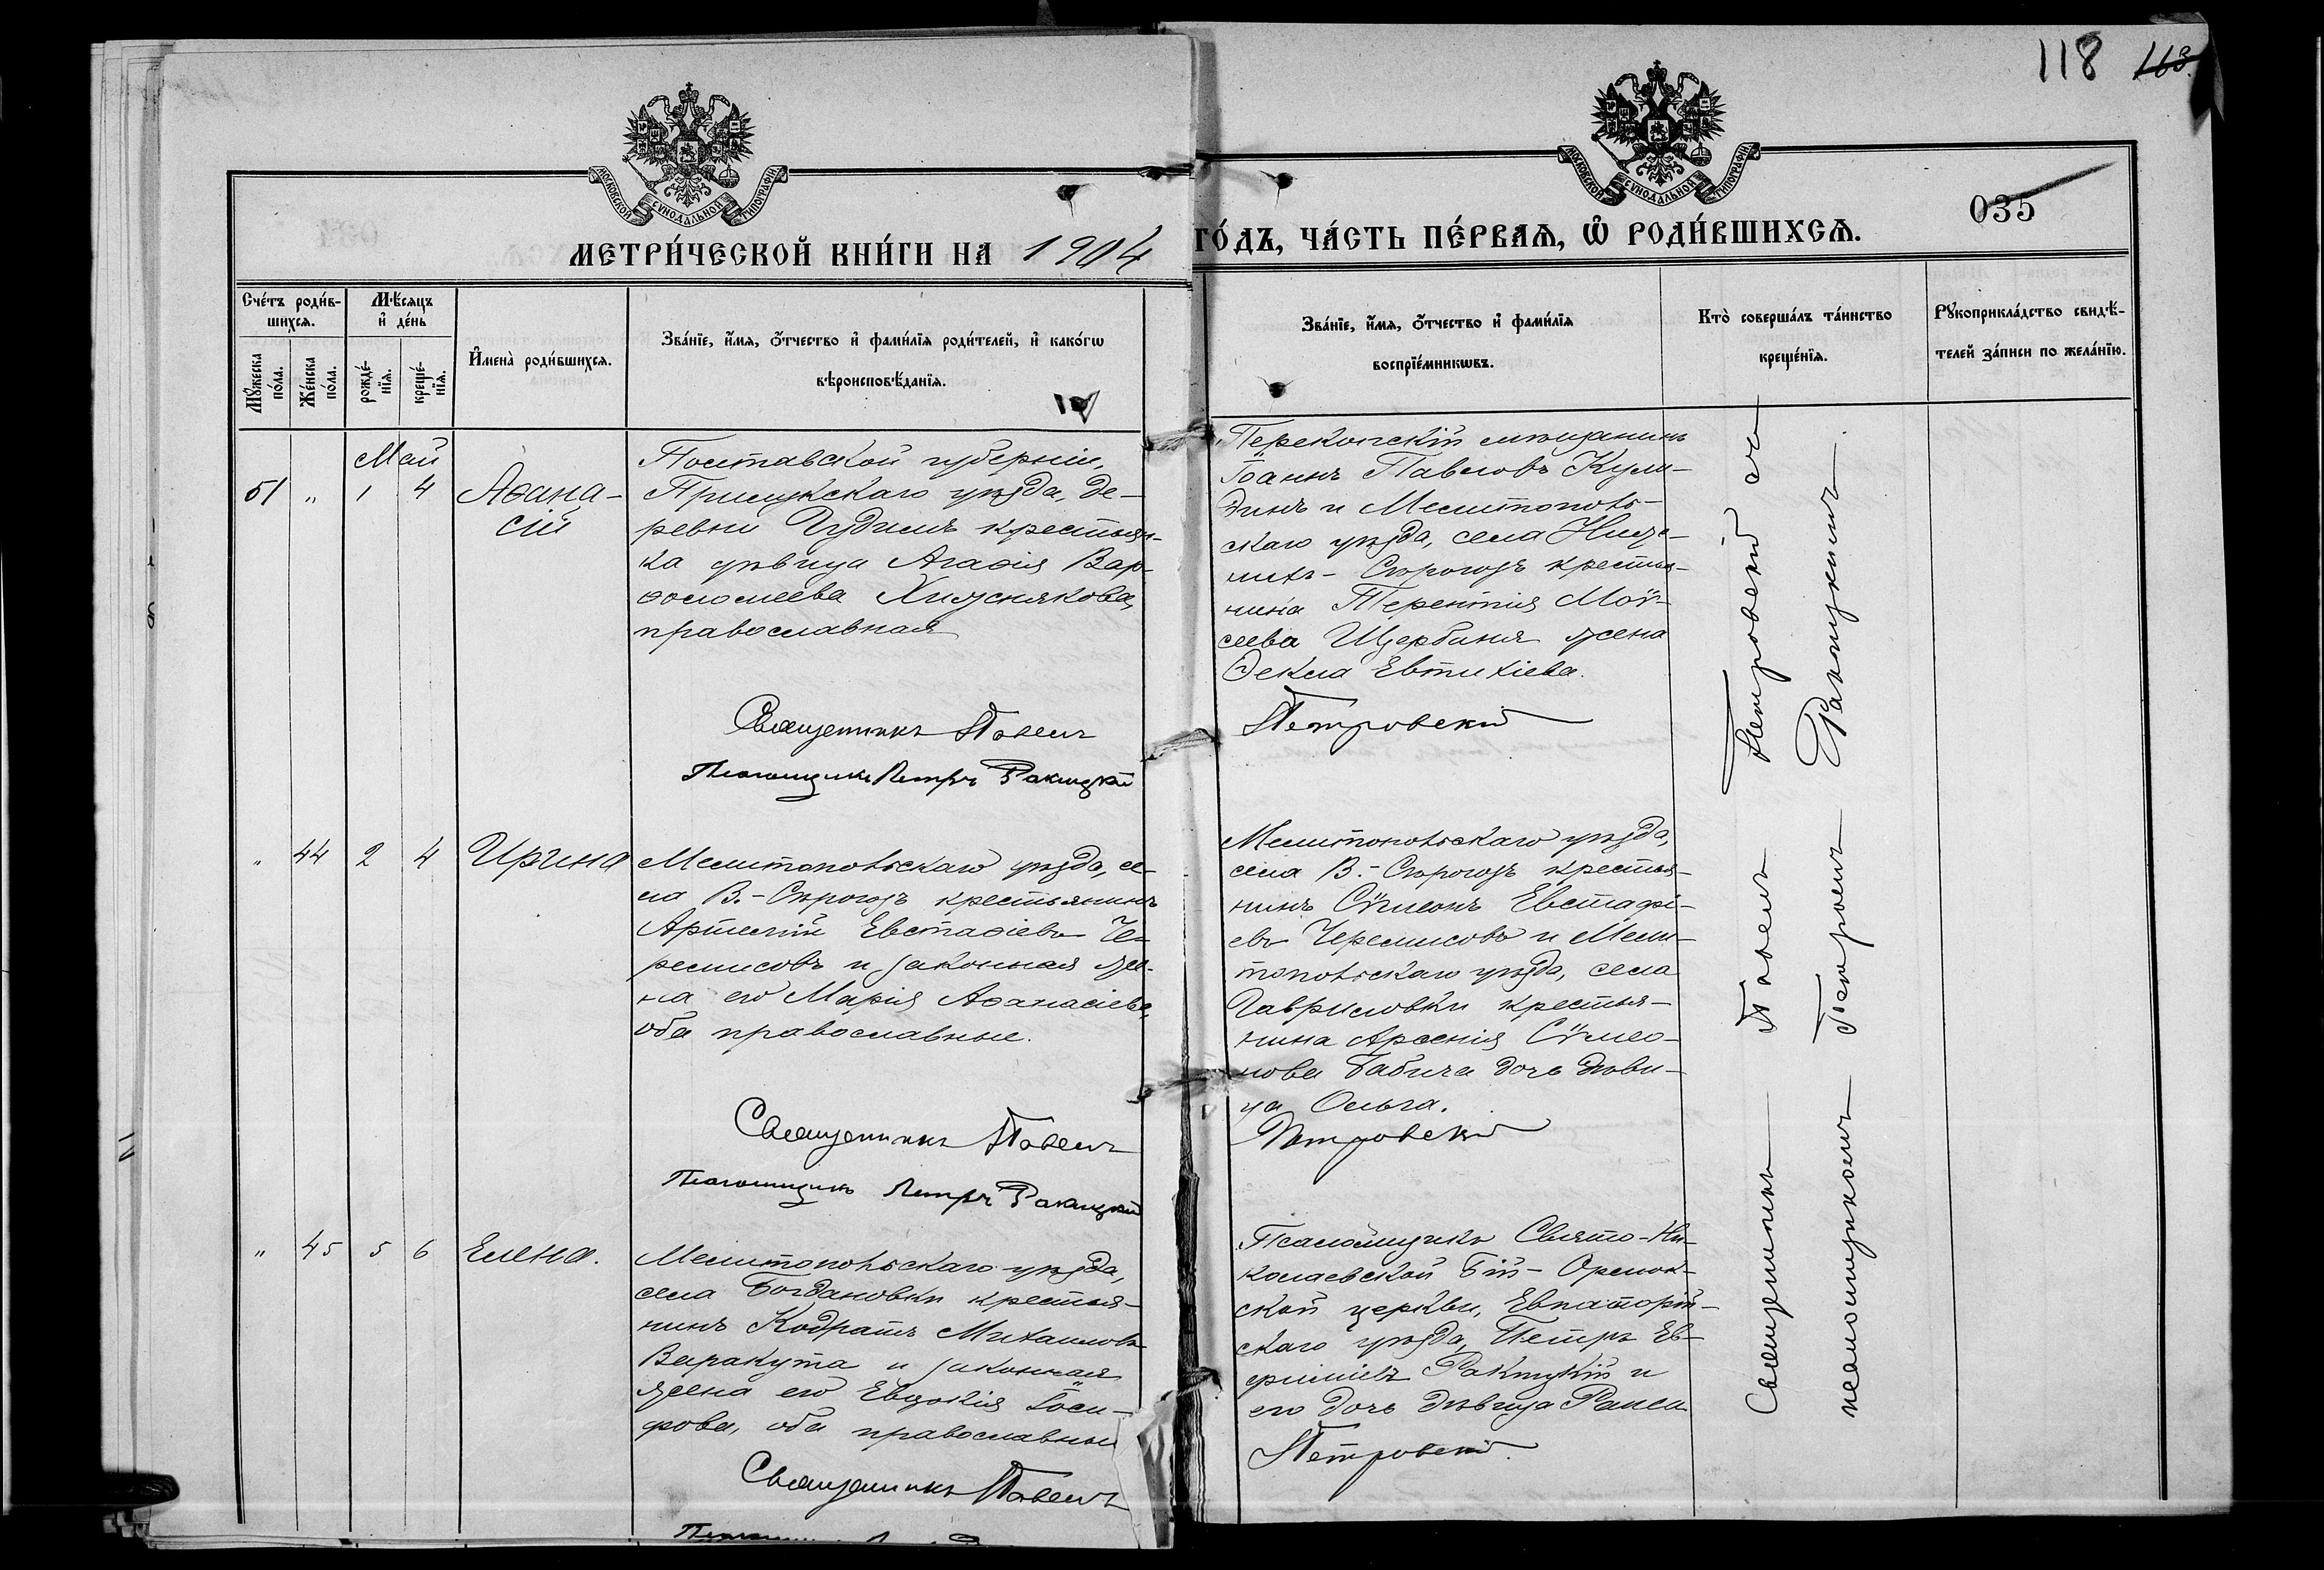 118 163.
МОСКОВСКОЙ СѴНОДАЛЬНОЙ ТИПОГРАФІИ
МОСКОВСКОЙ СѴНОДАЛЬНОЙ ТИПОГРАФІИ
035
МЕТРИ́ЧЕСКОЙ КНИ́ГИ НА 1904 ГО́ДЪ, ЧА́СТЬ ПЕ́РВАѦ, Ѡ҆ РОДИ́ВШИХСѦ.
Сче́тъ роди́в-
шихсѧ.
Мꙋ́жеска
по́ла.
Же́нска
по́ла.
Мѣ́сѧцъ
и҆ де́нь
рожде́-
нїѧ.
креще́-
нїѧ.
И҆мена̀ роди́вшихсѧ.
Зва́нїе, и҆́мѧ, ѻ҆́тчество и҆ фами́лїѧ роди́телей, и҆ како́гѡ
вѣроисповѣ́данїѧ.
Зва́нїе, и҆́мѧ, ѻ҆́тчество и҆ фами́лїѧ
воспрїе́мникѡвъ.
Кто̀ соверша́лъ та́инство
креще́нїѧ.
Рꙋкоприкла́дство свидѣ́-
телей за́писи по жела́нїю.
Май
51 " 1 4 Аѳана-
сій
Полтавской губерніи,
Прилукскаго уѣзда, де-
ревни Гудимъ крестьян-
ка дѣвица Агаѳія Вар-
ѳоломеева Хижнякова,
православная
Священникъ Павелъ
Псаломщикъ Петръ Ракицкій
Перекопскій мѣщанинъ
Іоаннъ Павловъ Кули-
динъ и Мелитополь-
скаго уѣзда, села Ниж-
нихъ - Сѣрогозъ крестья-
нина Терентія Моѵ-
сеева Щербиня жена
Ѳекла Евтихіева.
Петровскій
" 44 2 4 Ирина
Мелитопольскаго уѣзда, се-
ла В.-Сѣрогозъ крестьянинъ
Артемій Евстаѳіевъ Че-
ремисовъ и законная же-
на его Марія Аѳанасіева,
оба православные.
Священникъ Павелъ
Псаломщикъ Петръ Ракицкій
Мелитопольскаго уѣзда,
села В.-Сѣрогозъ крестья-
нинъ Сѵмеонъ Евстафі-
евъ Черемисовъ и Мели-
топольскаго уѣзда, села
Гавриловки крестья-
нина Арсенія Сѵмео-
нова Бабича дочь дѣви-
ца Ольга.
Петровскій
" 45 5 6 Елена.
Мелитопольскаго уѣзда,
села Богдановки крестья-
нинъ Кодратъ Михаиловъ
Варакута и законная
жена его Евдокія Іоси-
фова, оба православные
Священникъ Павелъ
Псаломщикъ Свято-Ни-
колаевской Бій-Орлюк-
ской церкви, Евпаторій-
скаго уѣзда, Петръ Ев-
фиміевъ Ракицкій и
его дочь дѣвица Раиса
Петровскій.
Священникъ Павелъ Петровскій съ
псаломщикомъ Петромъ Ракицкимъ.